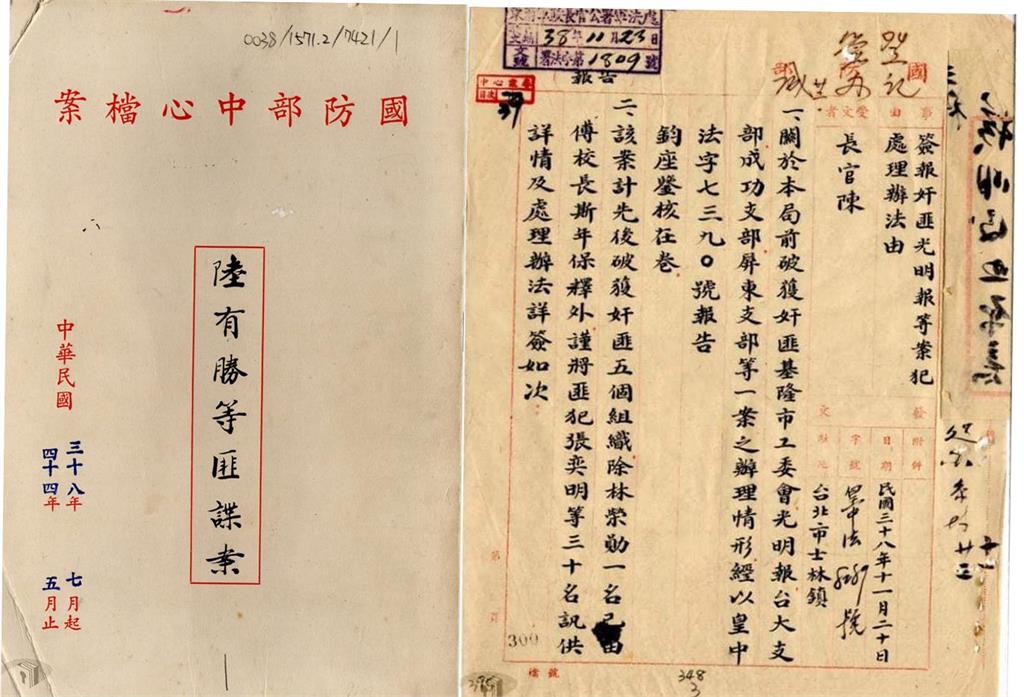 0038/1571.2/7421/1
國防部中心檔案
陸有勝等匪諜案
中華民國
三十八年七月起
四十四年五月止
38年11月23日
署法字第1809號
報告
登記
國
事由
受文者
簽報奸匪光明報等案犯
處理辦法由
長官陳
發文
附件
日期
字號
駐地
民國三十八年十一月二十日
皇中法
號
台北市士林鎮
一、關於本局前破獲奸匪基隆市工委會光明報台大支
部成功支部屏東支部等一案之辦理情形經以皇中
法字七三九〇號報告
鈞座鑒核在卷
二、該案計先後破獲奸匪五個組織除林榮勛一名已由
傅校長斯年保釋外謹將匪犯張奕明等三十名訊供
詳情及處理辦法詳簽如次
第
頁
300
檔號
348
3
395